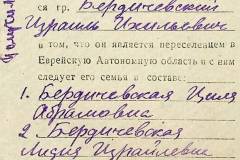 ся гр. Бердичевский
Израиль Ихильевич
в том, что он является переселенцем в
Еврейскую Автономную область и с ним
следует его семья в составе:
1. Бердичевская Циля
Абрамовна
2. Бердичевская
Лидия Израйлевн